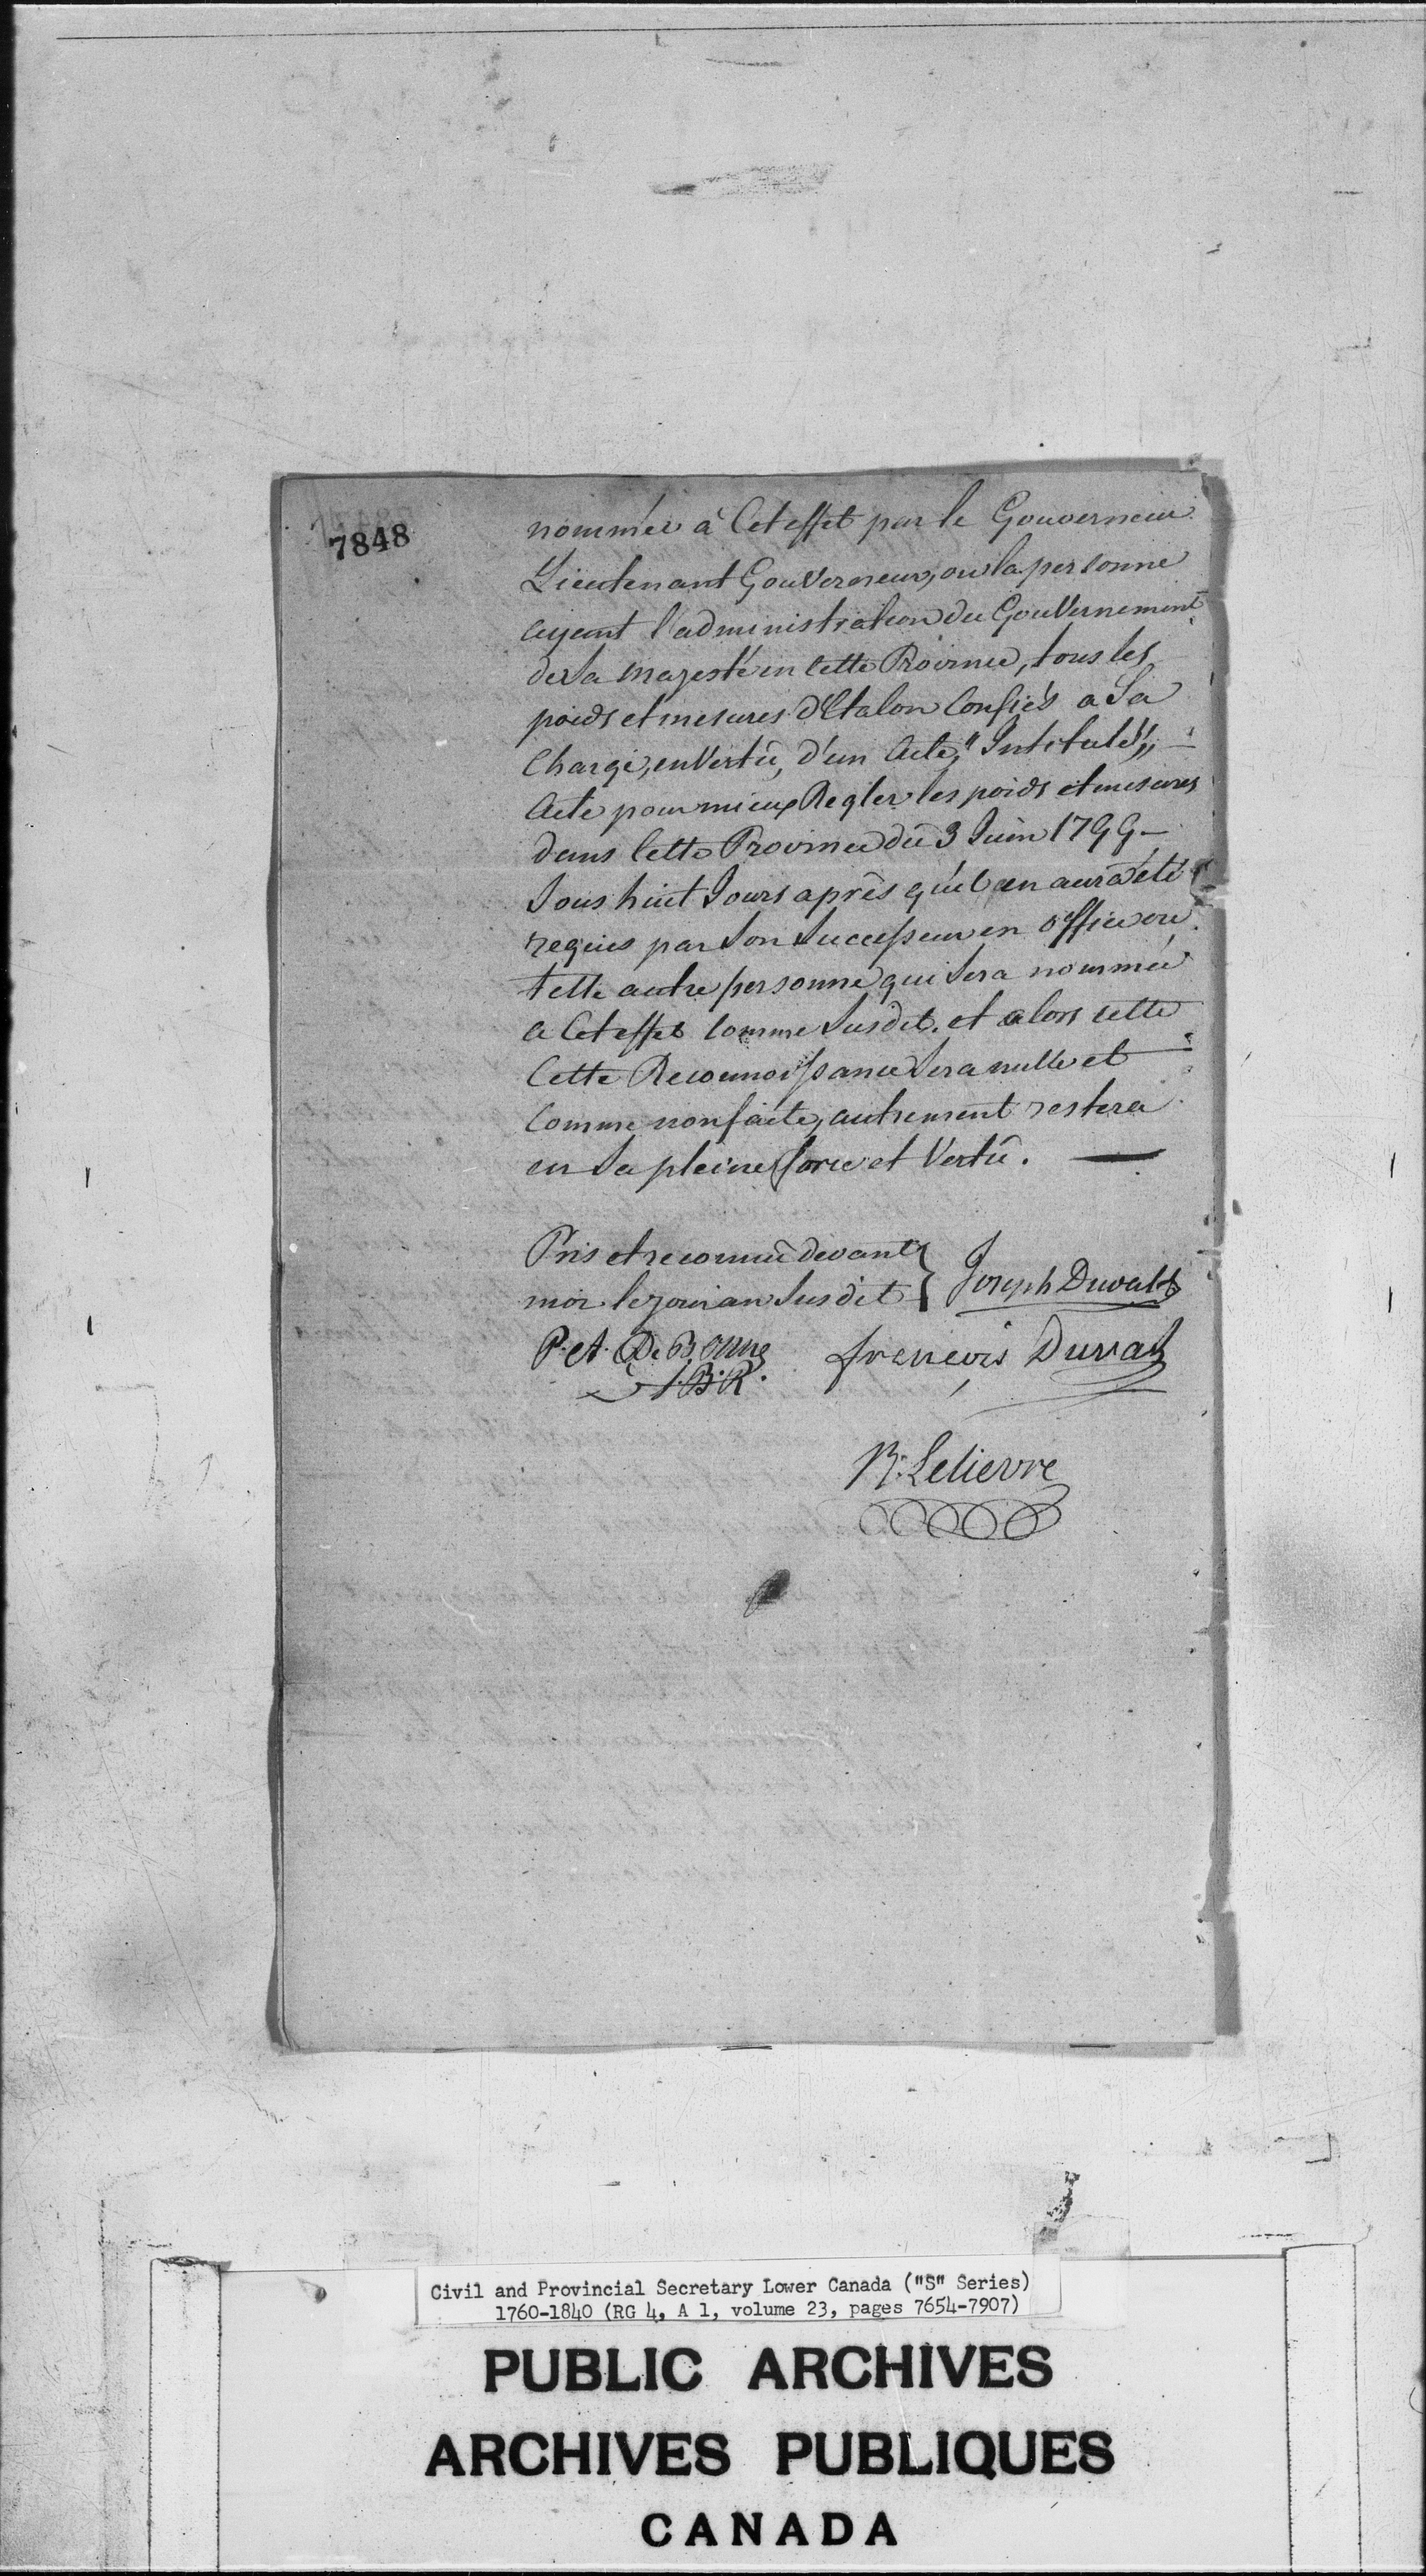 7848
nommée à Cet effet par le Gouverneur
Lieutenant Gouverneur, ou la personne
ayant l'administration du Gouvernement
de Sa Majesté en cette Province, tous les
poids et mesures d'Etalon Confiés a Sa
Charge, en Vertû, d'un Acte, "Intitulé,,
Acte pour mieux Regler les poids et mesures
dans Cette Province du 3 Juin 1799 —
Sous huit Jours après qu'il en aura été
requis par Son Successeur en Office ou
telle autre personne qui Sera nommée
a Cet effet Comme Susdit, et alors cette
Cette Reconnoissance Sera nulle et
Comme non faite, autrement restera
en Sa pleine force et Vertû. —
Pris et reconnu devant
moi le jour an Susdit } Joseph Duvall
P. A. De Bonne françois Duval
J.B.R.
R: Lelievre
Civil and Provincial Secretary Lower Canada ("S" Series)
1760-1840 (RG 4, A 1, volume 23, pages 7654-7907)
PUBLIC ARCHIVES
ARCHIVES PUBLIQUES
CANADA